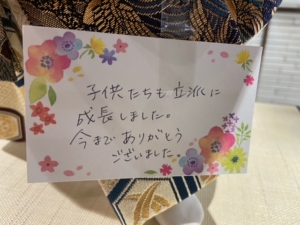 子供たちも立派に
成長しました。
今までありがとう
ございました。